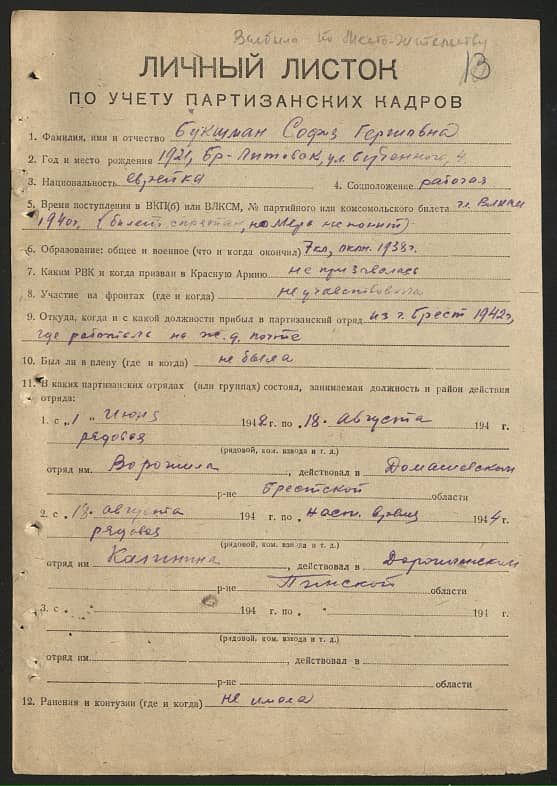 Выбыла по место-жительству
13
ЛИЧНЫЙ ЛИСТОК
ПО УЧЕТУ ПАРТИЗАНСКИХ КАДРОВ
1. Фамилия, имя и отчество Букшман Софья Гершовна
2. Год и место рождения 1921, Бр-Литовск, ул. 4.
3. Национальность еврейка 4. Соцположение рабочая
5. Время поступления в ВКП(б) или ВЛКСМ, № партийного или комсомольского билета чл. ВЛКСМ
1940г. (билет спрятан, номера не помнит)
6. Образование: общее и военное (что и когда окончил) 7кл, 1938г.
7. Каким РВК и когда призван в Красную Армию не призывалась
8. Участие на фронтах (где и когда) не участвовала
9. Откуда, когда и с какой должности прибыл в партизанский отряд из г. Брест 1942г,
где работала на ж.д. почте
10. Был ли в плену (где и когда) не была
11. В каких партизанских отрядах (или группах) состоял, занимаемая должность и район действия
отряда:
1. с „1 „ Июня 1942 г. по „18. августа 194 г.
рядовая
(рядовой, ком. взвода и т. д.)
отряд им. Ворошила, действовал в Домачевском
р-не Брестской области
2. с „18. августа 194 г. по „наст. время 1944 г.
рядовая
(рядовой, ком. взвода и т. д.)
отряд им Калинина, действовал в Дорогичинском
р-не Пинской области
3. с „ 194 г. по „ 194 г.
(рядовой, ком. взвода и т. д.)
отряд им. , действовал в
р-не области
12. Ранения и контузии (где и когда) не имела